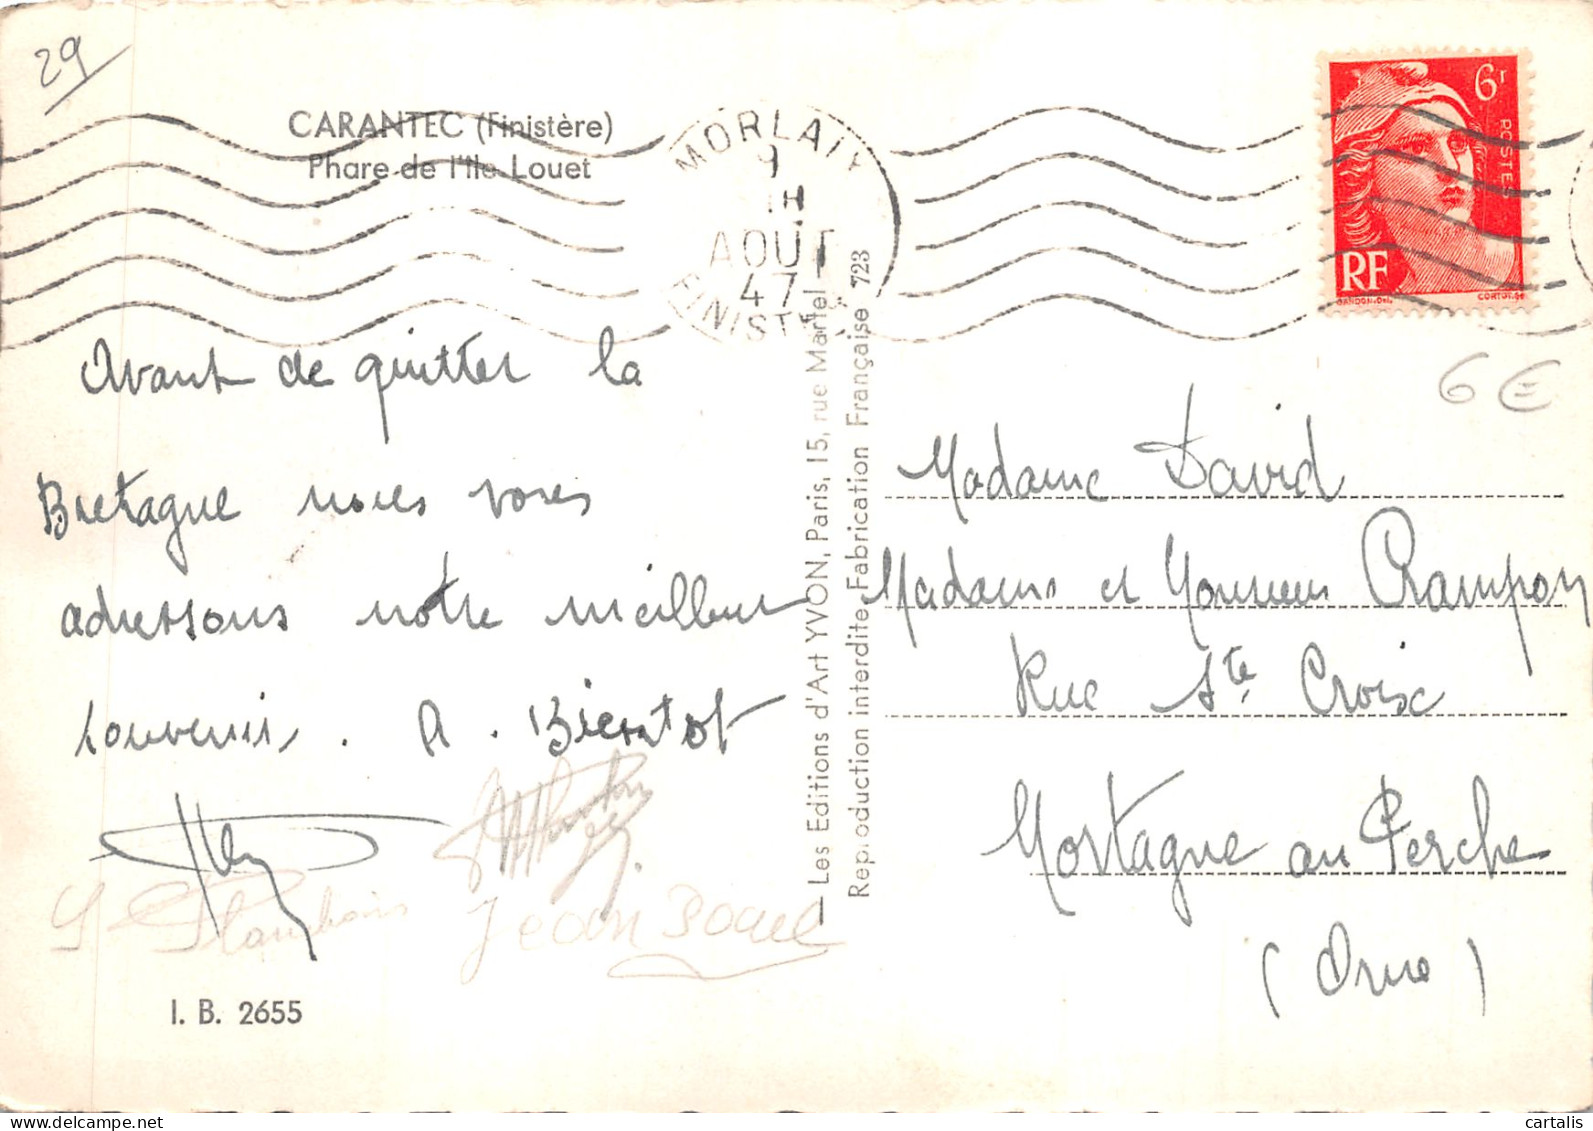 29
CARANTEC (Finistère)
Phare de l'Ile Louet
MORLAIX
9
AOUT
47
FINISTERE
6F
POSTES
RF
GANDON.DEL.
CORTOT.SC
6 €
Avant de quitter la
Bretagne nous vous
adressons notre meilleur
souvenir. A. Bierstof
Jean Pouël
I. B. 2655
Les Editions d'Art YVON, Paris, 15, rue Martel
Reproduction interdite Fabrication Française 723
Madame David
Madame et Monsieur Crampon
Rue Ste Croix
Mortagne au Perche
(Orne)
cartalis